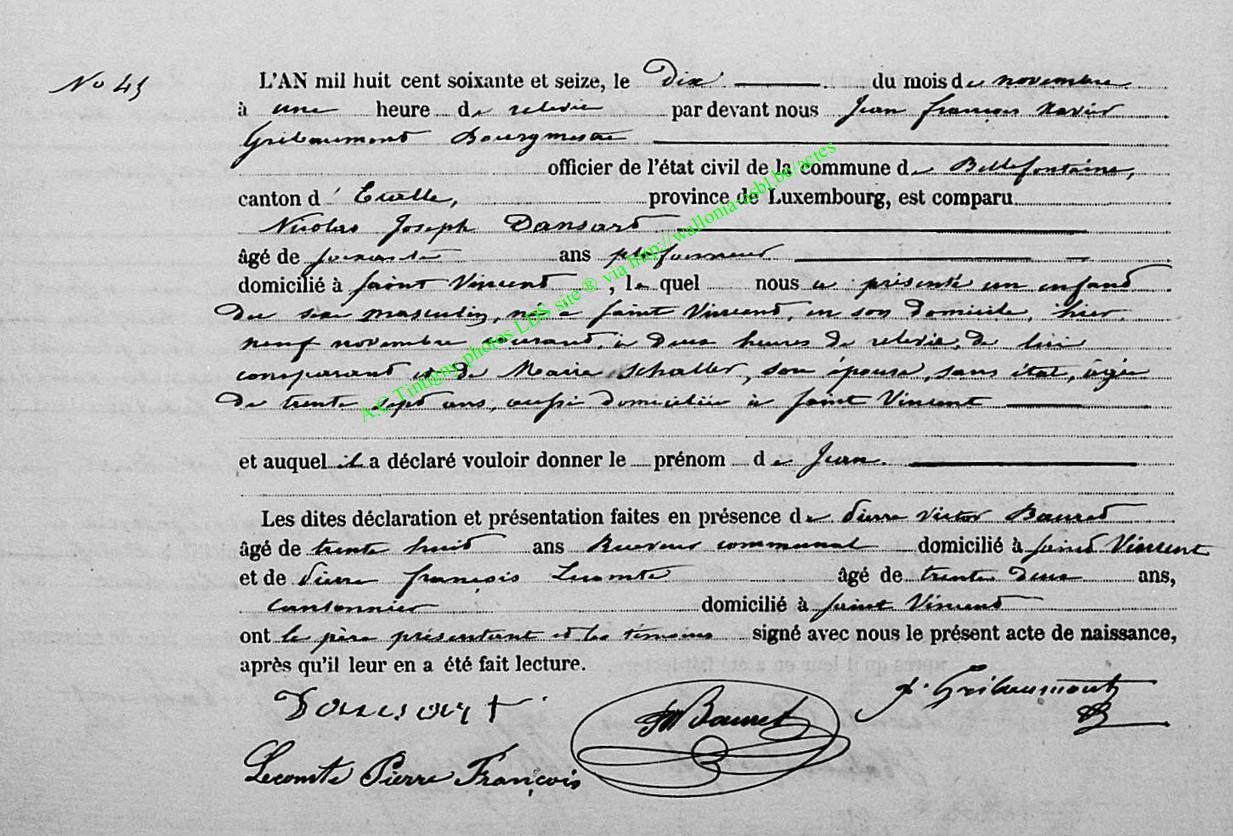 No 45
L'AN mil huit cent soixante et seize, le Dix du mois de novembre
à une heure de relevée par devant nous Jean françois xavier
Gribaumont Bourgmestre
officier de l'état civil de la commune de Bellefontaine,
canton d'Etalle, province de Luxembourg, est comparu
Nicolas Joseph Dansard
âgé de ans plafonneur
domicilié à saint Vincent, le quel nous a présenté un enfant
du sexe masculin, né à saint Vincent, en son domicile, hier,
neuf novembre courant, à deux heures de relevée, de lui
comparant et de Marie Schaller, son épouse, sans état, âgée
de trente sept ans, aussi domiciliée à saint Vincent
et auquel il a déclaré vouloir donner le prénom de Jean.
Les dites déclaration et présentation faites en présence de Pierre Victor Bauret
âgé de trente huit ans Receveur communal domicilié à saint Vincent
et de Pierre françois Lecomte âgé de trente deux ans,
cantonnier domicilié à saint Vincent
ont le père présentant et les témoins signé avec nous le présent acte de naissance,
après qu'il leur en a été fait lecture.
Dansart Bauret J. Gribaumont
Lecomte Pierre François
A.C.Tintigny photos LDS site ® via http://wallonia-asbl.be/actes